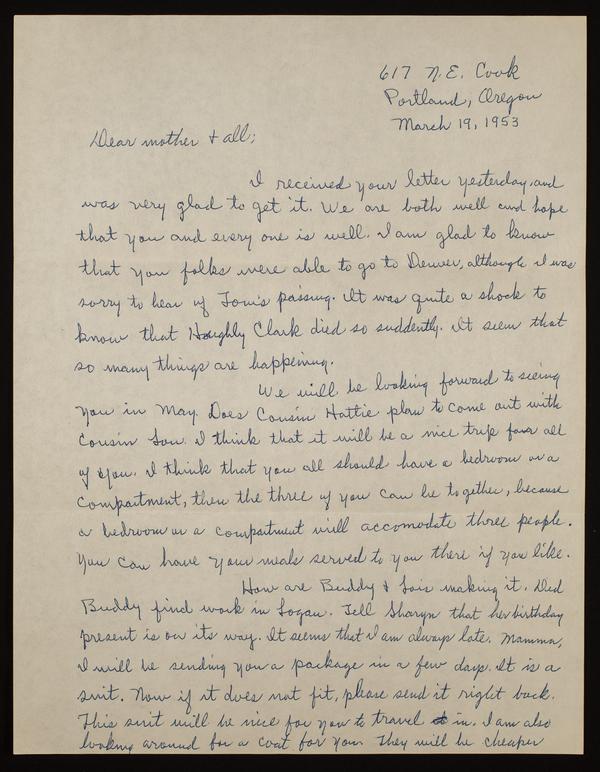 617 N.E. Cook
Portland, Oregon
March 19, 1953
Dear mother & all;
I received your letter yesterday, and
was very glad to get it. We are both well and hope
that you and every one is well. I am glad to know
that you folks were able to go to Denver, although I was
sorry to hear of Tom's passing. It was quite a shock to
know that Houghly Clark died so suddently. It seem that
so many things are happening.
We will be looking forward to seeing
you in May. Does Cousin Hattie plan to come out with
Cousin Lou. I think that it will be a nice trip for all
of you. I think that you all should have a bedroom or a
compartment, then the three of you can be together, because
a bedroom or a compartment will accomodate three people.
You can have your meals served to you there if you like.
How are Buddy & Lois making it. Did
Buddy find work in Logan. Tell Sharyn that her birthday
present is on its way. It seems that I am always late. Mamma,
I will be sending you a package in a few days. It is a
suit. Now if it does not fit, please send it right back.
This suit will be nice for you to travel in. I am also
looking around for a coat for you. They will be cheaper